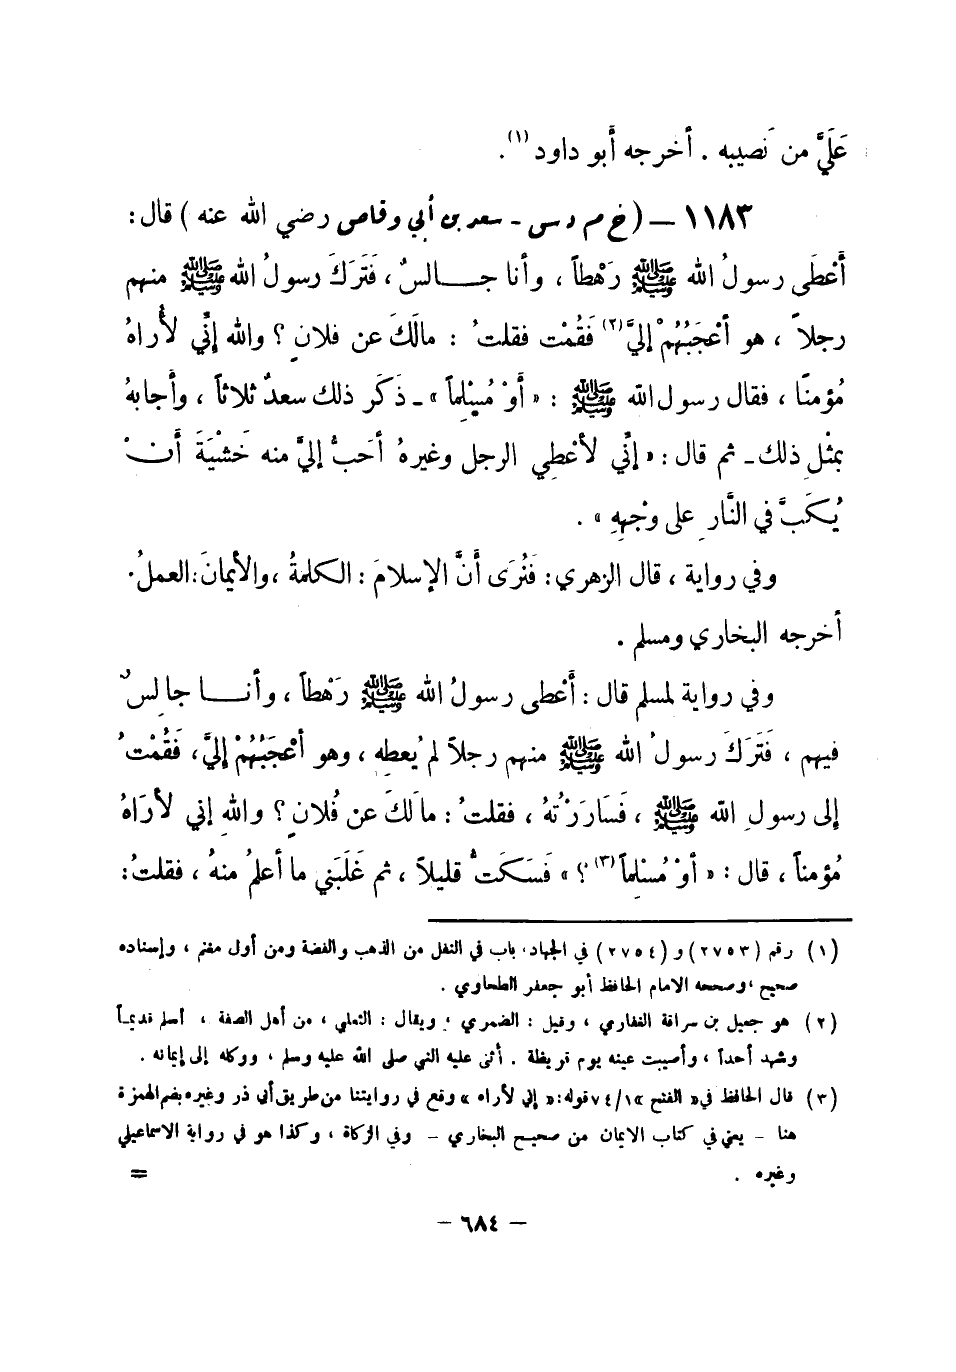 عَلَيَّ من نَصيبه . أخرجه أَبو داود (١) .
١١٨٣ – ( خ م د س - سعد بن أبي وقاص رضي الله عنه ) قال :
أَعْطَى رسولُ الله ﷺ رَهْطاً ، وأنا جالسٌ ، فَتَركَ رسولُ الله ﷺ منهم
رجلاً ، هو أعْجَبُهُمْ إليَّ (٢) فَقُمْت فقلتُ : مالَكَ عن فلانٍ ؟ والله إنِّي لأُراهُ
مُؤمنًا ، فقال رسول الله ﷺ : « أَوْ مُسْلِماً » - ذَكَر ذلك سعدٌ ثلاثاً ، وأَجابهُ
بمثْلِ ذلك - ثم قال : « إنِّي لأعْطِي الرجل وغيرهُ أحَبُّ إليَّ منه خَشْيَةَ أَنْ
يُكَبَّ في النَّارِ على وجْهِهِ » .
وفي رواية ، قال الزهري : فَنُرَى أنَّ الإسلامَ : الكلمةُ ، والأيمانَ : العملُ .
أخرجه البخاري ومسلم .
وفي رواية لمسلم قال : أَعْطى رسولُ الله ﷺ رَهْطاً ، وأنا جالِسٌ
فيهم ، فَتَرَكَ رسولُ الله ﷺ منهم رجلاً لم يُعطِهِ ، وهو أعْجَبُهُمْ إليَّ ، فَقُمْتُ
إلى رسولِ الله ﷺ ، فَسَارَرْتُهُ ، فقلتُ : مالَكَ عن فُلانٍ ؟ واللهِ إني لأرَاهُ
مُؤمناً ، قال : « أوْ مُسْلِماً (٣) ؟ » فَسَكَتُّ قليلاً ، ثم غَلَبَني ما أعلمُ منهُ ، فقلتُ :
(١) رقم (٢٧٥٣) و (٢٧٥٤) في الجهاد ، باب في النفل من الذهب والفضة ومن أول مغنم ، وإسناده
صحيح ، وصححه الامام الحافظ أبو جعفر الطحاوي .
(٢) هو جعيل بن سراقة الغفاري ، وقيل : الضمري ، ويقال : الثعلي ، من أهل الصفة ، أسلم قديماً
وشهد أحداً ، وأصيبت عينه يوم قريظة . أثنى عليه النبي صلى الله عليه وسلم ، ووكله إلى إيمانه .
(٣) قال الحافظ في « الفتح » ٧٤/١ قوله : « إني لأراه » وقع في روايتنا من طريق أبي ذر وغيره بضم الهمزة
هنا – يعني في كتاب الايمان من صحيح البخاري – وفي الزكاة ، وكذا هو في رواية الاسماعيلي
وغيره . =
– ٦٨٤ –